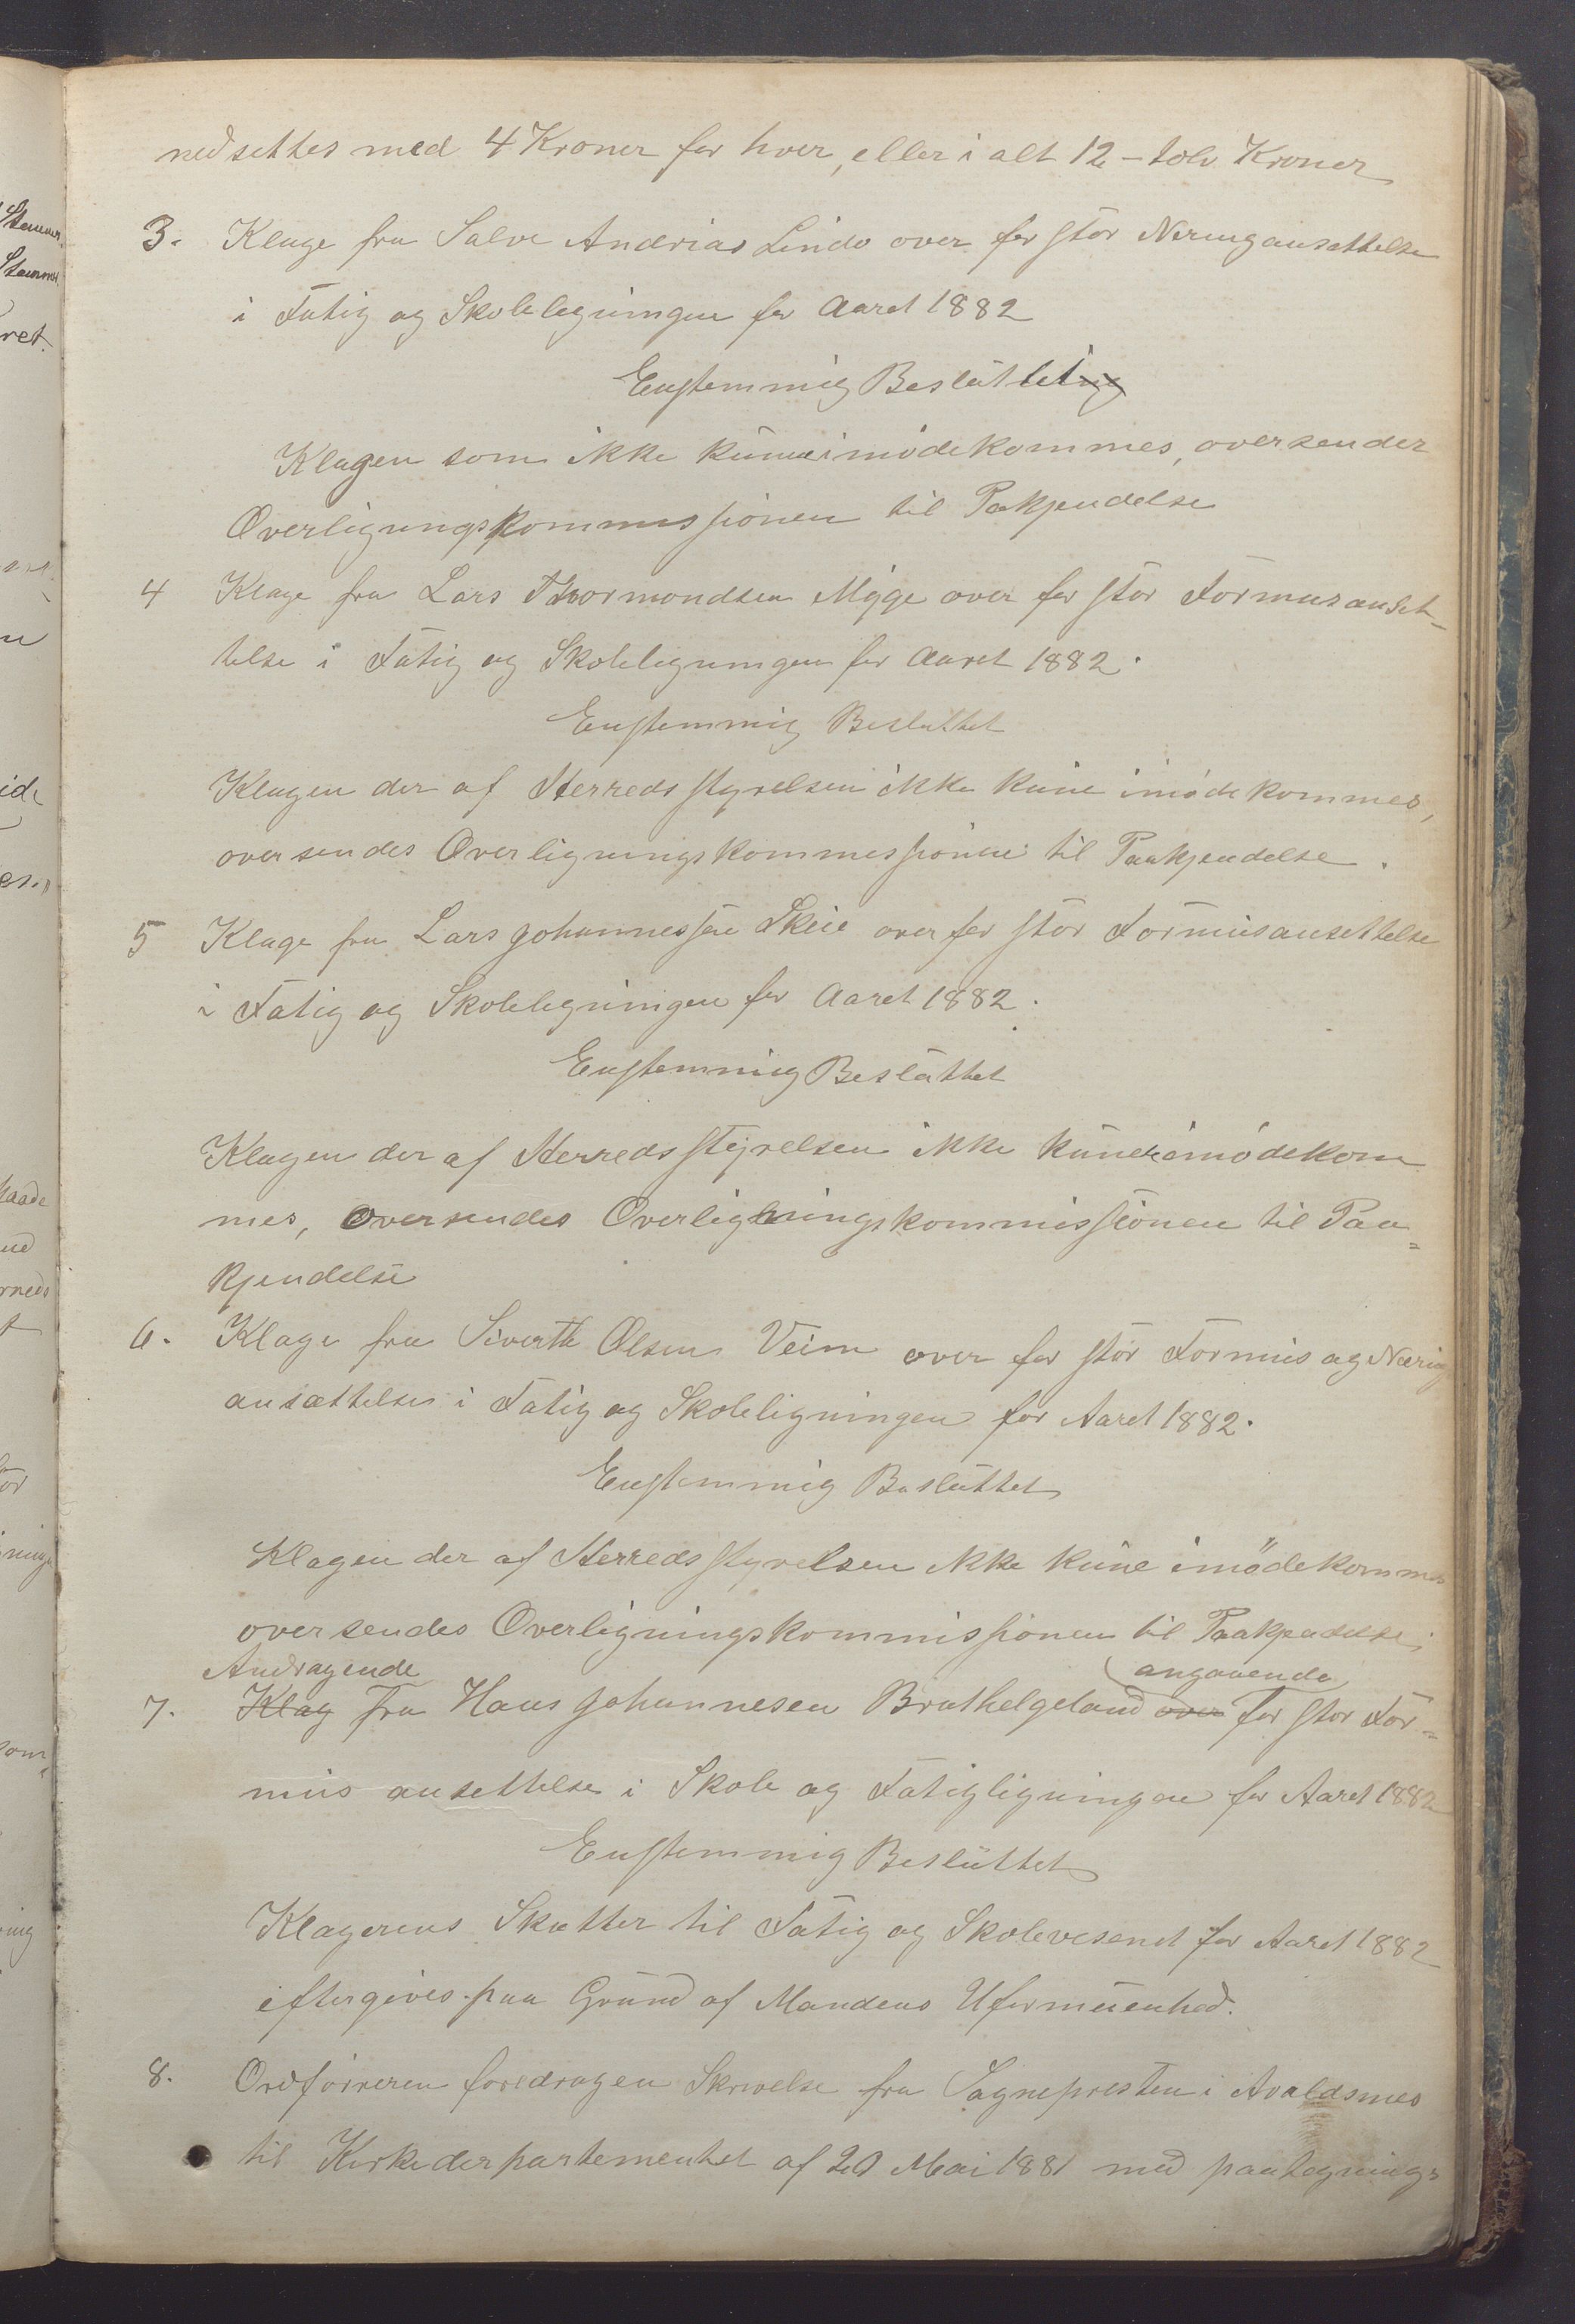 nedsettes med 4 Kroner for hver, eller i alt 12 – tolv Kroner
3. Klage fra Salve Andrias Lindo over for stor Neringansettelse
i Fatig og Skoleligningen for Aaret 1882
Enstemmig Besluttet
Klagen som ikke kune imødekommes, oversender
Overligningskommissionen til Pakjendelse
4 Klage fra Lars Thormondsen Myge over for stor Formusanset-
telse i Fatig og Skoleligningen for Aaret 1882.
Enstemmig Besluttet
Klagen der af Herredsstyrelsen ikke kune imødekommes,
oversendes Overligningskommissionen til Paakjendelse.
5 Klage fra Lars Johannessen Skeie over for stor Formusansettelse
i Fatig og Skoleligningen for Aaret 1882.
Enstemmig Besluttet
Klagen der af Herredsstyrelsen ikke kune imødekom
mes, oversendes Overligningskommissionen til Paa=
kjendelse
6. Klage fra Siverth Olsen Veim over for stor Formus og Nærig
ansættelse i Fatig og Skoleligningen for Aaret 1882.
Enstemmig Besluttet
Klagen der af Herredsstyrelsen ikke kune imødekommes
oversendes Overligningskommissionen til Paakjendelse
Andragende angaaende
7. Klag fra Hans Johannesen Brathelgeland over for stor For=
mus ansettelse i Skole og Fatigligningen for Aaret 1882
Enstemmig Besluttet
Klagerens Skatter til Fatig og Skolevesenet for Aaret 1882
eftergives paa Grund af Mandens Uformuenhed.
8. Ordføreren foredrogen Skrivelse fra Sognepresten i Avaldsnes
til Kirkederpartementet af 20 Mai 1881 med paategnings